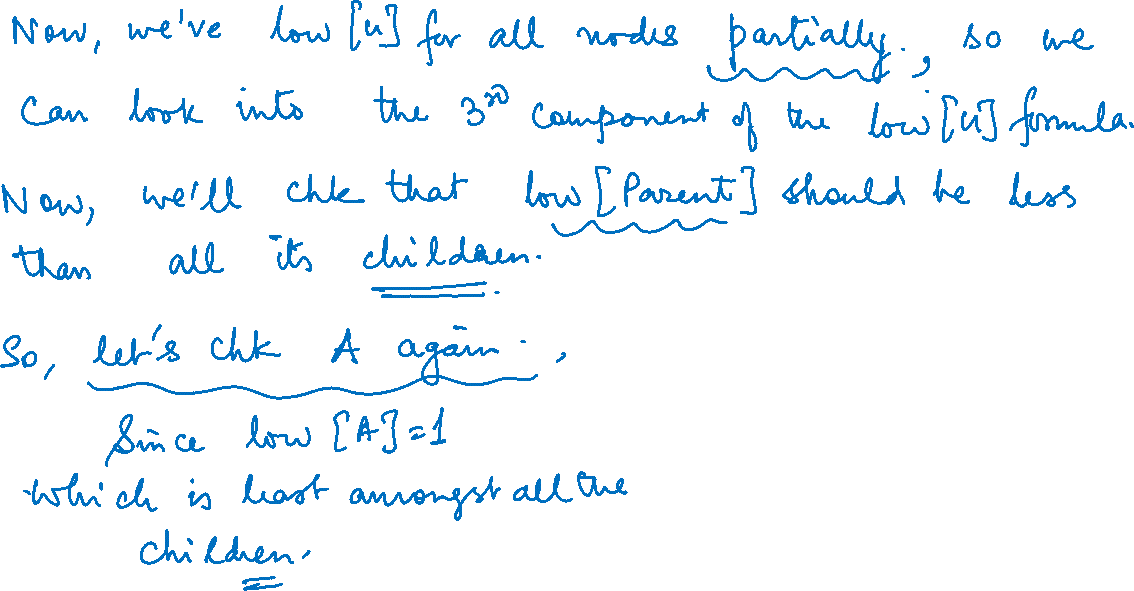 Now, we've low [u] for all nodes partially., so we
can look into the 3rd component of the low [u] formula.
Now, we'll chk that low [Parent] should be less
than all its children.
So, let's chk A again.,
Since low [A]=1
which is least amongst all the
children.